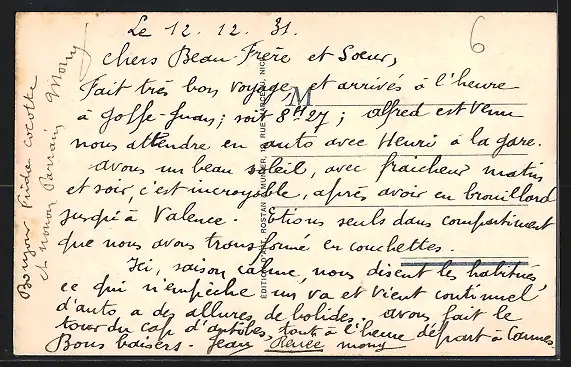 Le 12. 12. 31.
6
chers Beau-Frère et Sœur,
Fait très bon voyage, et arrivés à l'heure
M
à Golfe-Juan; soit 8H27; Alfred est venu
nous attendre en auto avec Henri à la gare.
avons un beau soleil, avec fraicheur matin
et soir, c'est incroyable, après avoir eu brouillard
jusqu'à Valence. Etions seuls dans compartiment
que nous avons transformé en couchettes.
Ici, saison calme, nous disent les habitués
ce qui n'empêche un va et vient continuel
d'auto a des allures de bolides. avons fait le
tour du cap d'antibes, tout à l'heure départ à Cannes.
Bons baisers. Jean Renée mony
Bonjour cocotte
et Parrain Mony
EDITION D'ART, ROSTAN & MUNIER, RUE MARCEAU, NICE